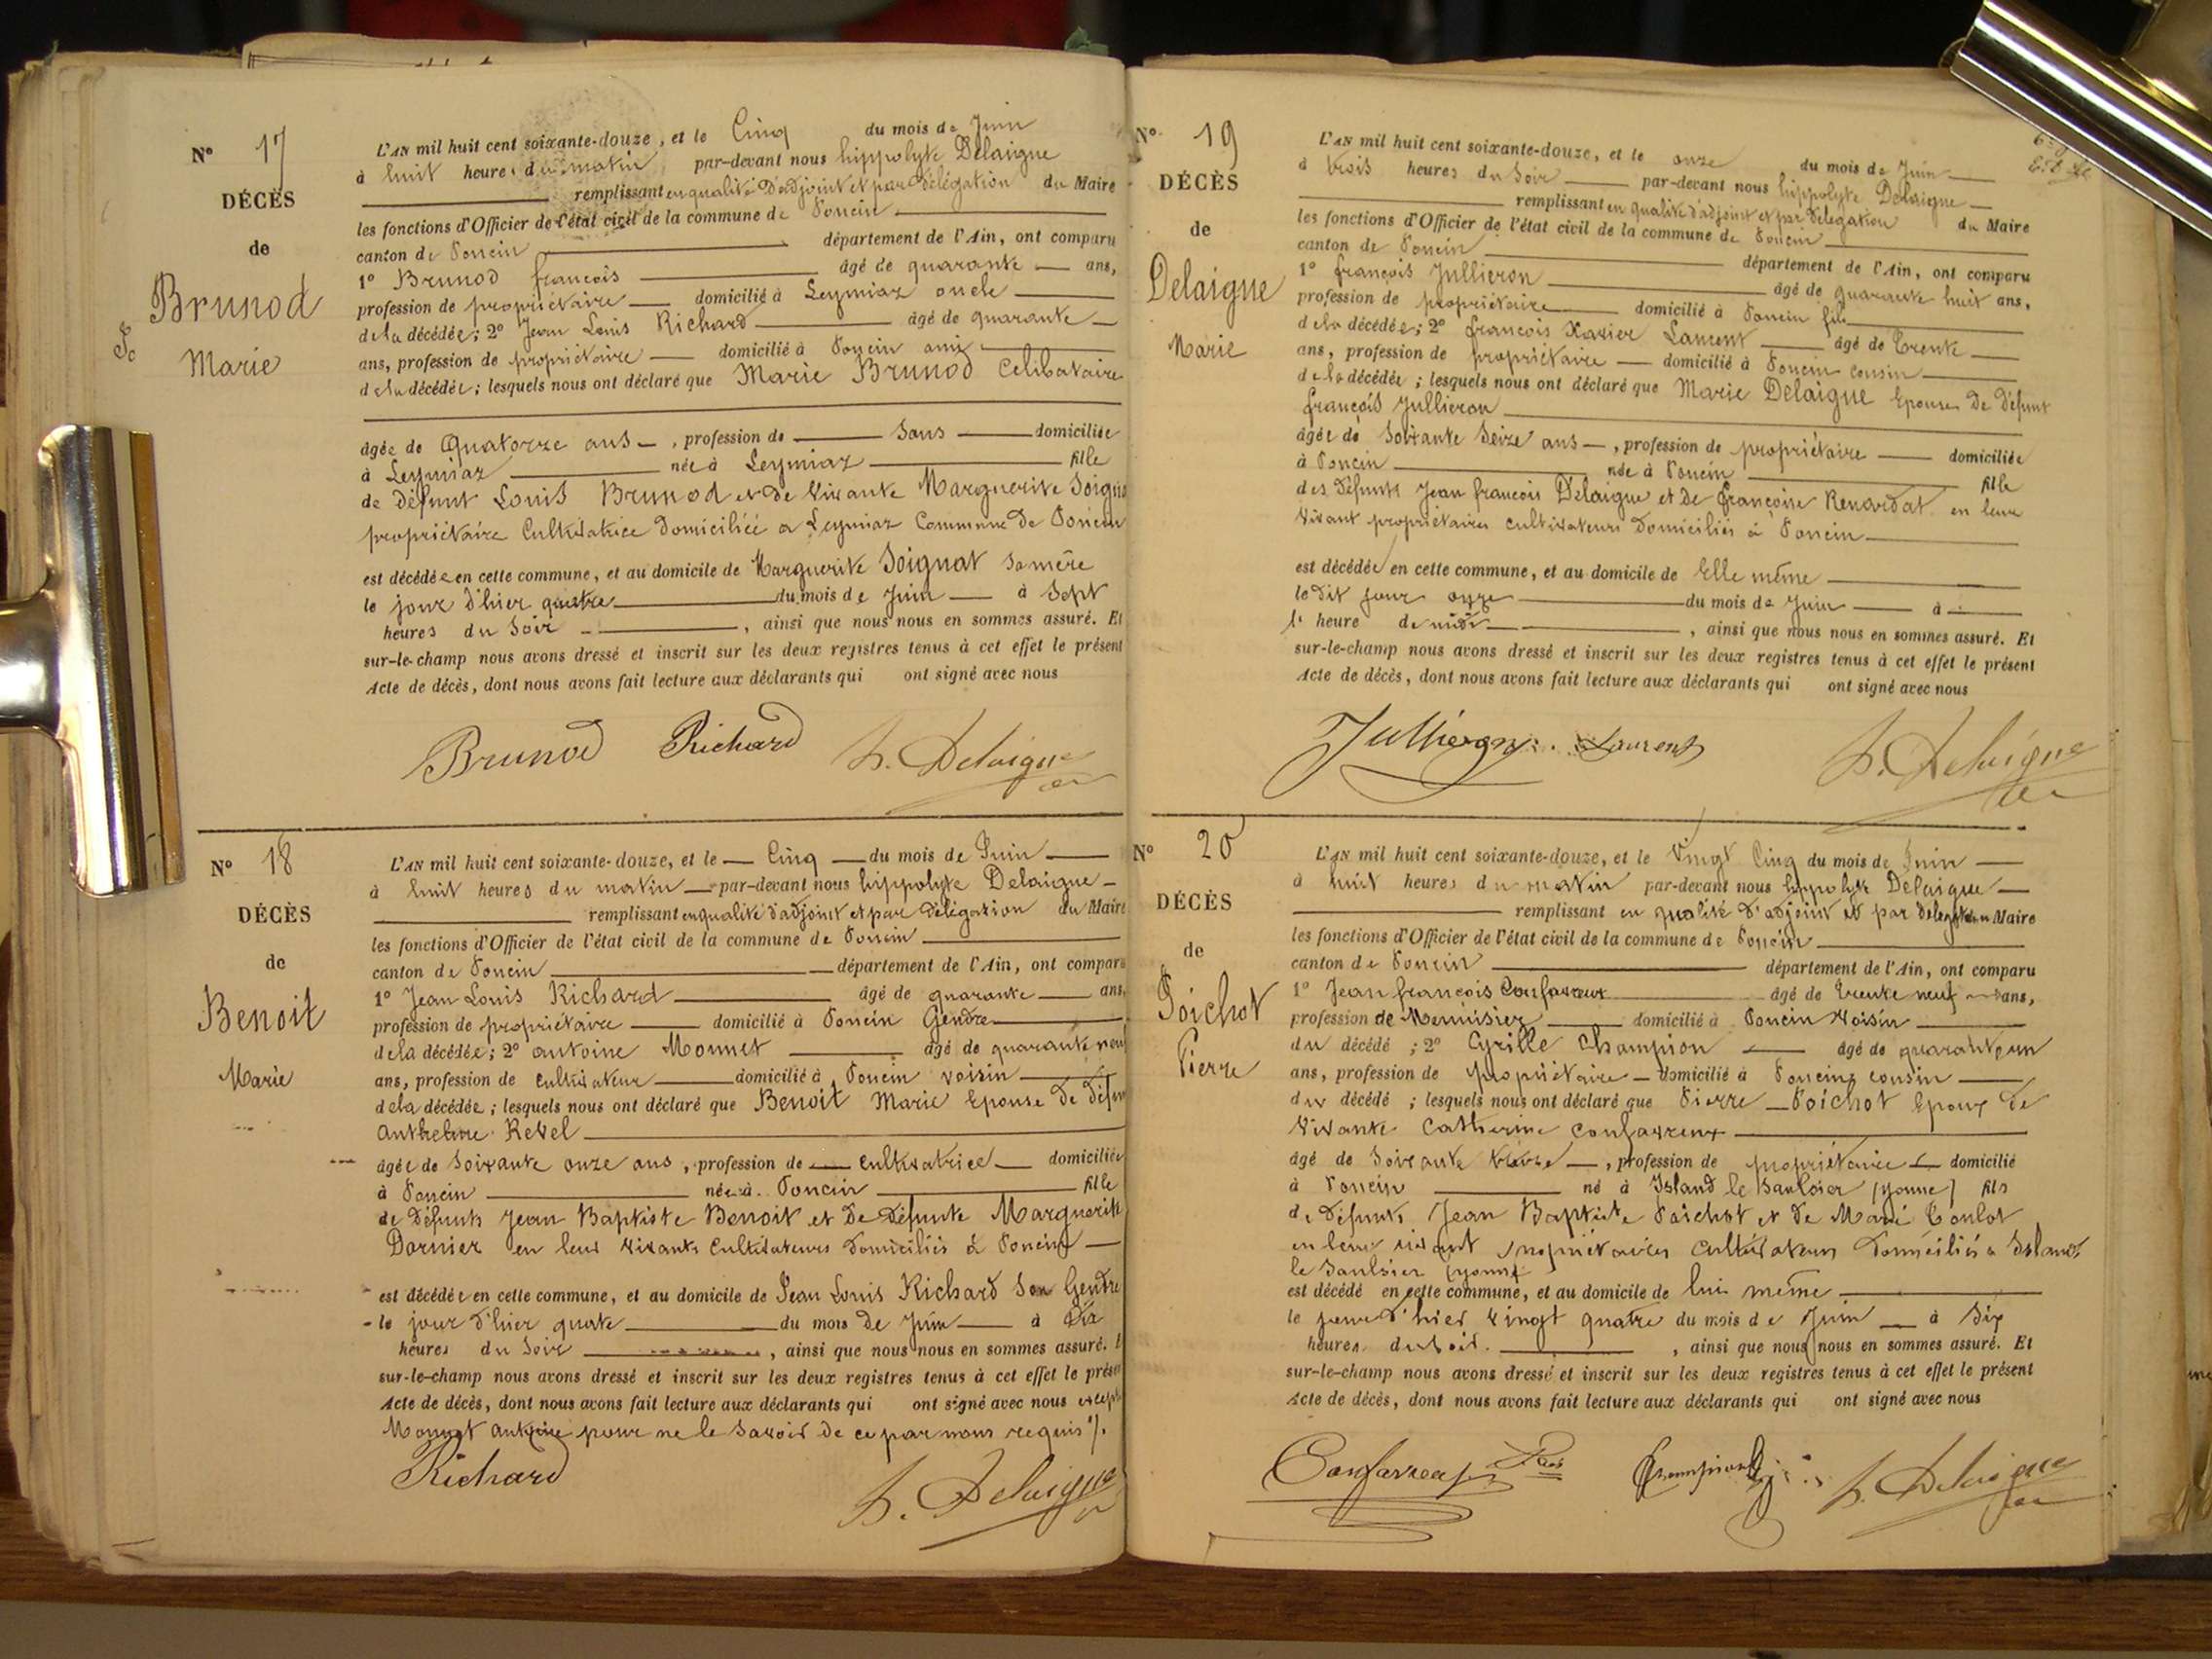 N° 17
DÉCÈS
de
Brunod
Marie
L'AN mil huit cent soixante-douze, et le Cinq du mois de Juin
à huit heures du matin par-devant nous hippolyte Delaigne
remplissant en qualité d'adjoint et par délégation du Maire
les fonctions d'Officier de l'état civil de la commune de Poncin
canton de Poncin département de l'Ain, ont comparu
1° Brunod françois âgé de quarante ans,
profession de propriétaire domicilié à Leymiaz oncle
de la décédée; 2° Jean Louis Richard âgé de quarante
ans, profession de propriétaire domicilié à Poncin ami
de la décédée; lesquels nous ont déclaré que Marie Brunod Celibataire
âgée de Quatorze ans, profession de sans domiciliée
à Leymiaz née à Leymiaz fille
de défunt Louis Brunod et de vivante Marguerite Soignat
propriétaire Cultivatrice domiciliée a Leymiaz Commune de Poncin
est décédée en cette commune, et au domicile de Marguerite Soignat sa mère
le jour d'hier quatre du mois de Juin à sept
heures du soir, ainsi que nous nous en sommes assuré. Et
sur-le-champ nous avons dressé et inscrit sur les deux registres tenus à cet effet le présent
Acte de décès, dont nous avons fait lecture aux déclarants qui ont signé avec nous
Brunod Richard h. Delaigne
N° 18
DÉCÈS
de
Benoit
Marie
L'AN mil huit cent soixante-douze, et le Cinq du mois de Juin
à huit heures du matin par-devant nous hippolyte Delaigne
remplissant en qualité d'adjoint et par délégation du Maire
les fonctions d'Officier de l'état civil de la commune de Poncin
canton de Poncin département de l'Ain, ont comparu
1° Jean Louis Richard âgé de quarante ans,
profession de propriétaire domicilié à Poncin Gendre
de la décédée; 2° antoine Monnet âgé de quarante neuf
ans, profession de cultivateur domicilié à Poncin voisin
de la décédée; lesquels nous ont déclaré que Benoit Marie Epouse de défun
Anthelme Revel
âgée de soixante onze ans, profession de cultivatrice domiciliée
à Poncin née à Poncin fille
de défunts Jean Baptiste Benoit et de défunte Marguerite
Dornier en leur vivants Cultivateurs domiciliés à Poncin
est décédée en cette commune, et au domicile de Jean Louis Richard son Gendre
le jour d'hier quatre du mois de Juin à dix
heures du soir, ainsi que nous nous en sommes assuré. E
sur-le-champ nous avons dressé et inscrit sur les deux registres tenus à cet effet le prése
Acte de décès, dont nous avons fait lecture aux déclarants qui ont signé avec nous excepté
Monnet antoine pour ne le savoir de ce par nous requis ./.
Richard h. Delaigne
N° 19
DÉCÈS
de
Delaigue
Marie
L'AN mil huit cent soixante-douze, et le onze du mois de Juin
à trois heures du soir par-devant nous hippolyte Delaigne
remplissant en qualité d'adjoint et par délégation du Maire
les fonctions d'Officier de l'état civil de la commune de Poncin
canton de Poncin département de l'Ain, ont comparu
1° françois Jullieron âgé de quarante huit ans,
profession de propriétaire domicilié à Poncin fils
de la décédée; 2° francois Xavier Laurent âgé de trente
ans, profession de propriétaire domicilié à Poncin cousin
de la décédée; lesquels nous ont déclaré que Marie Delaigue Epouse de défunt
françois Jullieron
âgée de soixante seize ans, profession de propriétaire domiciliée
à Poncin née à Poncin fille
des défunts Jean francois Delaigue et de françoise Renardat en leur
vivant propriétaires cultivateurs domiciliés à Poncin
est décédée en cette commune, et au domicile de Elle même
le dit jour onze du mois de Juin à
heure de midi, ainsi que nous nous en sommes assuré. Et
sur-le-champ nous avons dressé et inscrit sur les deux registres tenus à cet effet le présent
Acte de décès, dont nous avons fait lecture aux déclarants qui ont signé avec nous
Jullieron Laurent h. Delaigne
N° 20
DÉCÈS
de
Poichot
Pierre
L'AN mil huit cent soixante-douze, et le vingt Cinq du mois de Juin
à huit heures du matin par-devant nous hippolyte Delaigue
remplissant en qualité d'adjoint et par délégation du Maire
les fonctions d'Officier de l'état civil de la commune de Poncin
canton de Poncin département de l'Ain, ont comparu
1° Jean francois Confavreux âgé de trente neuf ans,
profession de Menuisier domicilié à Poncin voisin
du décédé; 2° Cyrille Champion âgé de quarante un
ans, profession de propriétaire domicilié à Poncin cousin
du décédé; lesquels nous ont déclaré que Pierre Poichot Epoux de
vivante Catherine Confavreux
âgé de soixante treize, profession de propriétaire domicilié
à Poncin né à Island le Saulsier (yonne) fils
de défunts Jean Baptiste Poichot et de Marie Coulot
en leur vivant propriétaires cultivateurs domiciliés a Island
le Saulsier (yonne
est décédé en cette commune, et au domicile de lui même
le jour d'hier vingt quatre du mois de Juin à six
heures du soir., ainsi que nous nous en sommes assuré. Et
sur-le-champ nous avons dressé et inscrit sur les deux registres tenus à cet effet le présent
Acte de décès, dont nous avons fait lecture aux déclarants qui ont signé avec nous
Confavreux Champion h. Delaigne